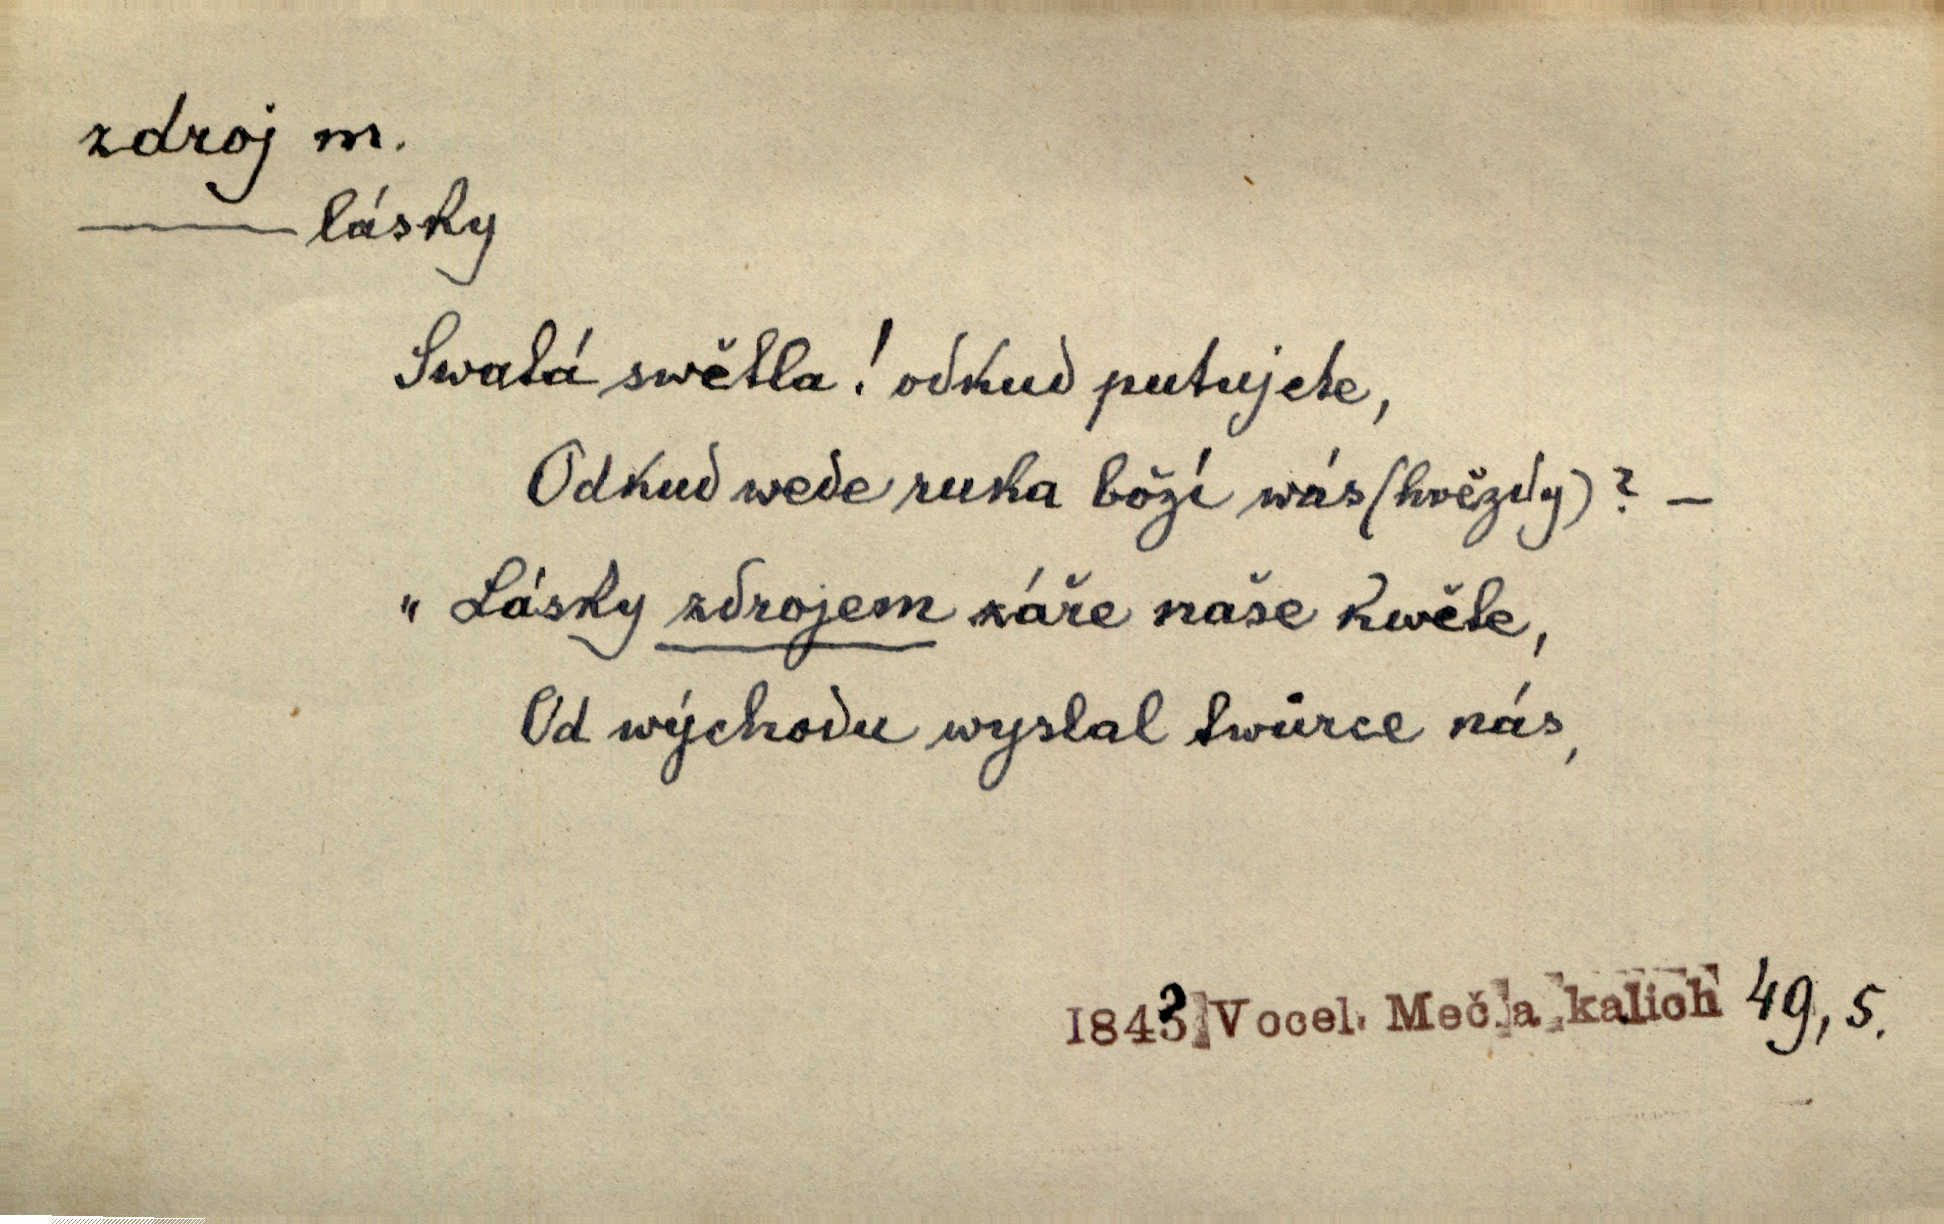 zdroj m.
—— lásky
Swatá swětla! odkud putujete,
Odkud wede ruka boží wás (hvězdy)? —
„ Lásky zdrojem záře naše kwěte,
Od wýchodu wyslal twůrce nás,
1843 Vocel. Meč a kalich 49, 5.